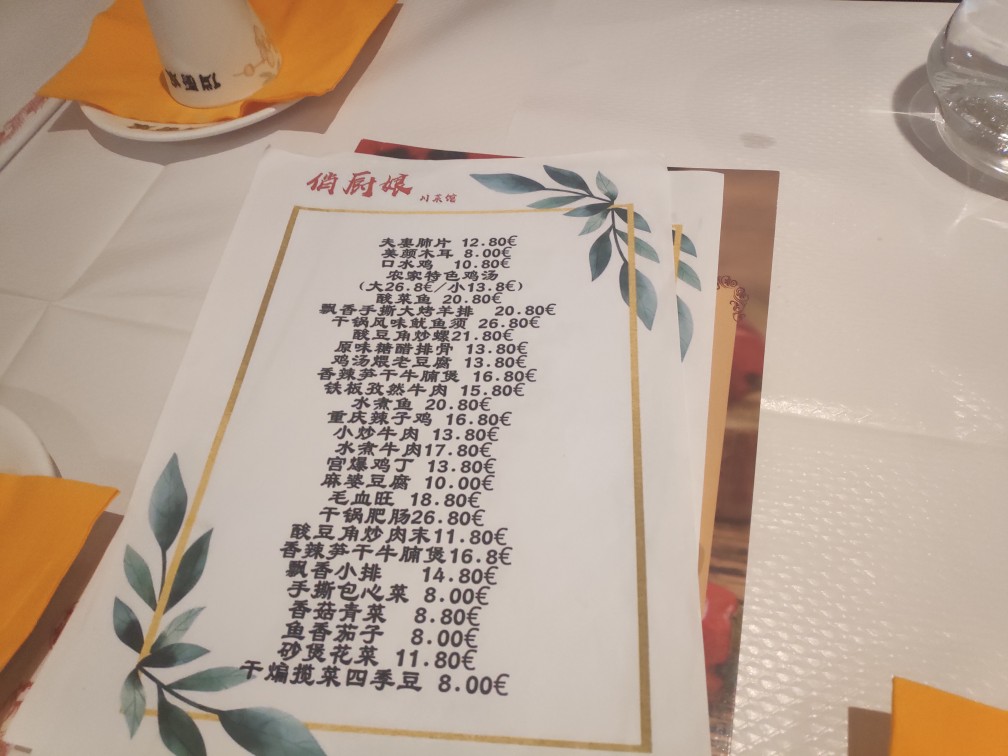 俏厨娘
川菜馆
夫妻肺片 12.80€
美颜木耳 8.00€
口水鸡 10.80€
农家特色鸡汤
(大26.8€/小13.8€)
酸菜鱼 20.80€
飘香手撕大烤羊排 20.80€
干锅风味鱿鱼须 26.80€
酸豆角炒螺21.80€
原味糖醋排骨 13.80€
鸡汤煨老豆腐 13.80€
香辣笋干牛腩煲 16.80€
铁板孜然牛肉 15.80€
水煮鱼 20.80€
重庆辣子鸡 16.80€
小炒牛肉 13.80€
水煮牛肉17.80€
宫爆鸡丁 13.80€
麻婆豆腐 10.00€
毛血旺 18.80€
干锅肥肠26.80€
酸豆角炒肉末11.80€
香辣笋干牛腩煲16.8€
飘香小排 14.80€
手撕包心菜 8.00€
香菇青菜 8.80€
鱼香茄子 8.00€
砂煲花菜 11.80€
干煸揽菜四季豆 8.00€